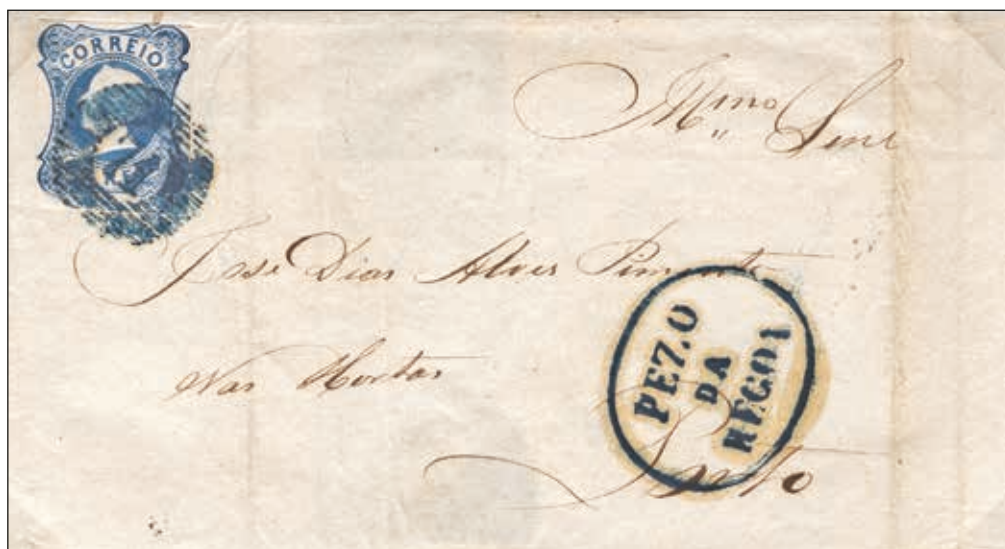 CORREIO
Illmo Snr
José Dias Alves Pimenta
Nas Hortas
PEZ.O
DA
REGOA
Porto